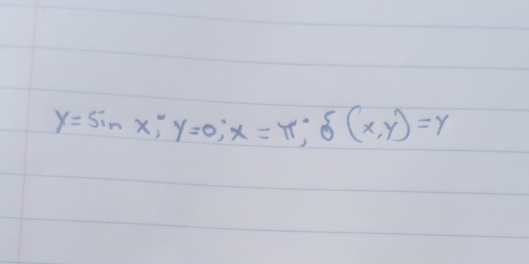 y = sin x; y=0; x = π; δ (x,y) = y